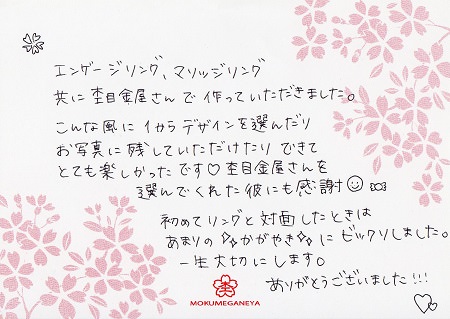 エンゲージリング、マリッジリング
共に杢目金屋さんで作っていただきました。
こんな風にイチからデザインを選んだり
お写真に残していただけたりできて
とても楽しかったです♡杢目金屋さんを
選んでくれた彼にも感謝☺
初めてリングと対面したときは
あまりの✨かがやき✨にビックリしました。
一生大切にします。
ありがとうございました!!!
MOKUMEGANEYA